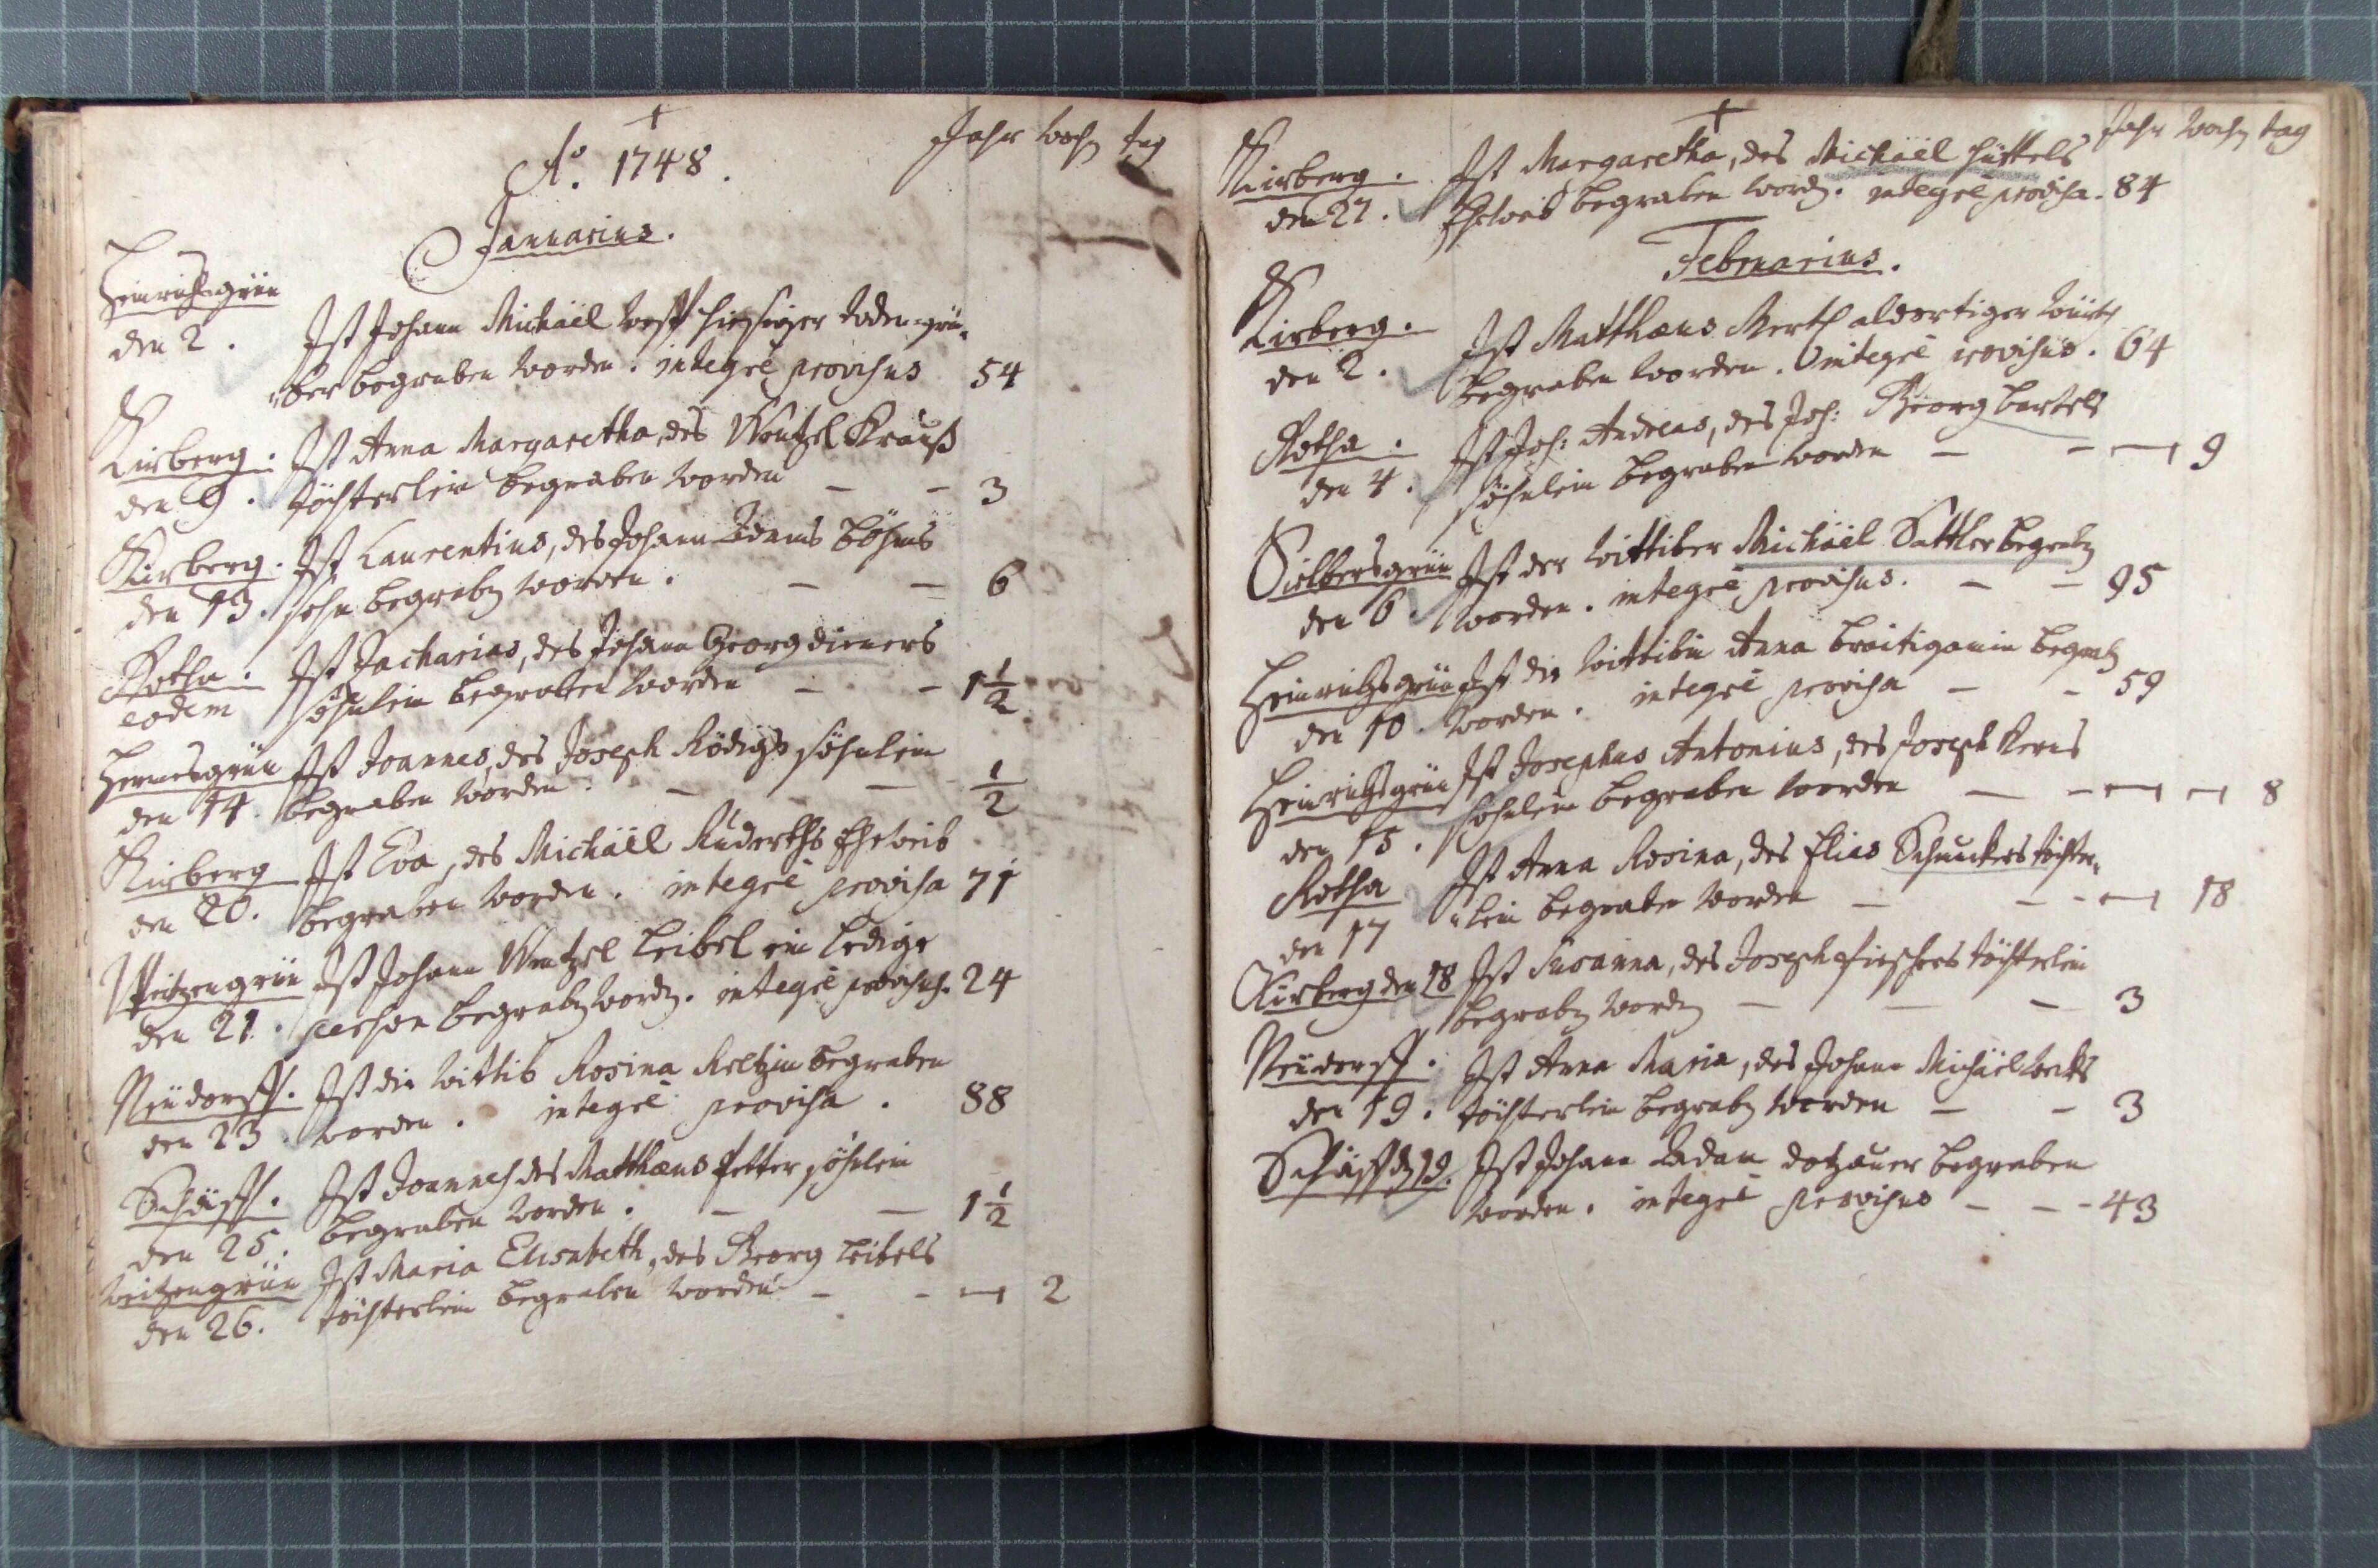 †
Ao. 1748.
Jahr woch tag
Januarius.
Heinrichsgrün
den 2. Ist Johann Michael hiesiger Todengrä-
ber begraben worden. integrè provisus 54
Kirberg. Ist Anna Margaretha, des Wentzel Krauß
den 9. töchterlein begraben worden – – 3
Kirberg. Ist Laurentius, des Johann Adams Böhms
den 13. sohn begraben worden. – – 6
Rotha. Ist Zacharias, des Johann Georg dieners
eodem söhnlein begraben worden – – 1 1/2
Hermesgrün Ist Joannes, des Joseph Rödigs söhnlein
den 14. begraben worden. – – 1/2
Kirberg Ist Eva, des Michaël Ruderths Eheweib
den 20. begraben worden. integrè provisa 71
Weitzengrün Ist Johann Wentzel Leibel ein ledige
den 21. person begraben worden. integrè provisus. 24
Neüdorff. Ist die wittib Rosina begraben
den 23 worden. integrè provisa. 88
Schäff. Ist Joannes des Matthæus söhnlein
den 25. begraben worden. – – 1 1/2
Weitzengrün Ist Maria Elisabeth, des Georg Leibels
den 26. töchterlein begraben worden – – – 2
†
Jahr woch tag
Kirberg. Ist Margaretha, des Michaël Hüttels
den 27. Eheweib begraben worden. integrè provisa. 84
Februarius.
Kirberg. Ist Matthæus Merth aldortiger
den 2. begraben worden. integrè provisus. 64
Rotha. Ist Joh: Andreas, des Joh: Georg Bartels
den 4. söhnlein begraben worden – – – 9
Silbersgrün Ist der wittiber Michaël Sattler begraben
den 6. worden. integrè provisus. – – 95
Heinrichsgrün Ist die wittibin Anna Braitigamin begraben
den 10. worden. integrè provisa – – 59
Heinrichsgrün Ist Josephus Antonius, des Joseph Kerns
den 15. söhnlein begraben worden – – – – 8
Rotha Ist Anna Rosina, des Elias Schmuckers töchter-
den 17 lein begraben worden – – – 18
Kirberg den 18 Ist Susanna, des Joseph fischers töchterlein
begraben worden – – – 3
Neüdorff. Ist Anna Maria, des Johann Michaël
den 19. töchterlein begraben worden – – 3
Schäff den 19. Ist Johann Adam dotzauer begraben
worden. integrè provisus – – – 43